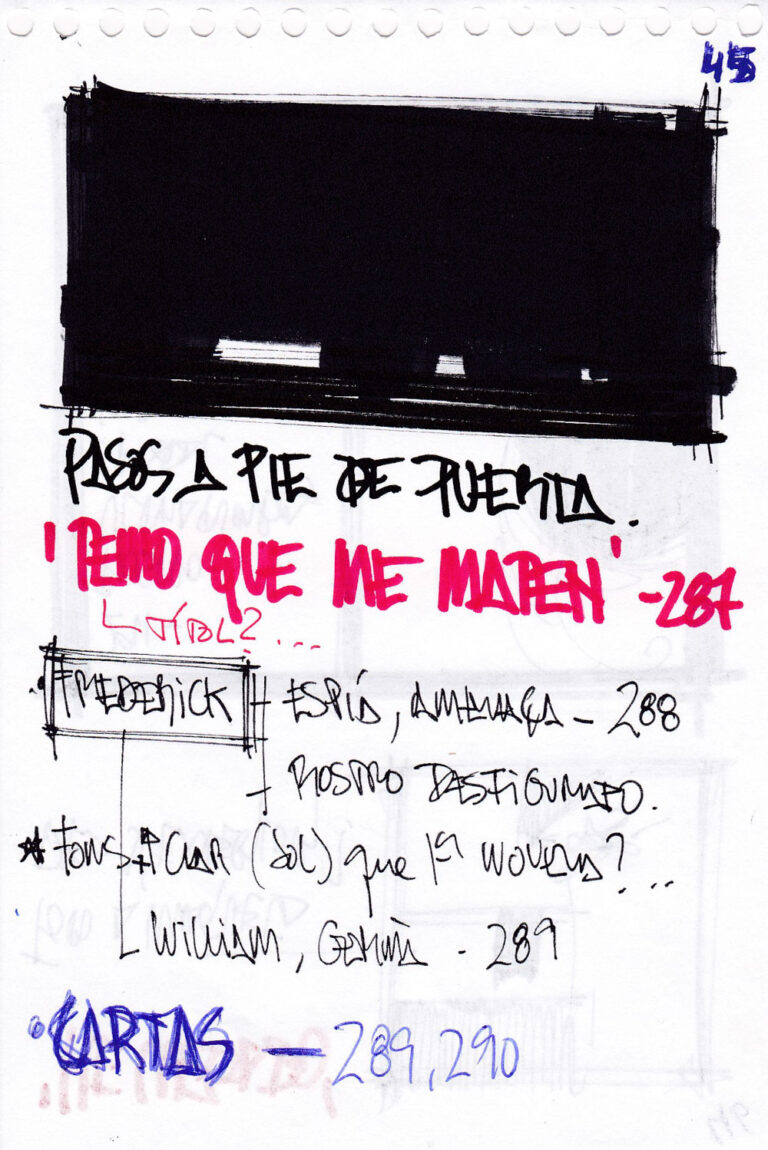 45
PASOS A PIE DE PUERTA.
'TEMO QUE ME MATEN' -287
TÍTOL? ...
FREDERICK - ESPÍA, AMENAÇA - 288
- ROSTRO DESFIGURADO.
* FONS + CLAR (SOL) que 1ª NOVEL·LA? ...
WILLIAM, GERMÀ - 289
CARTAS - 289, 290